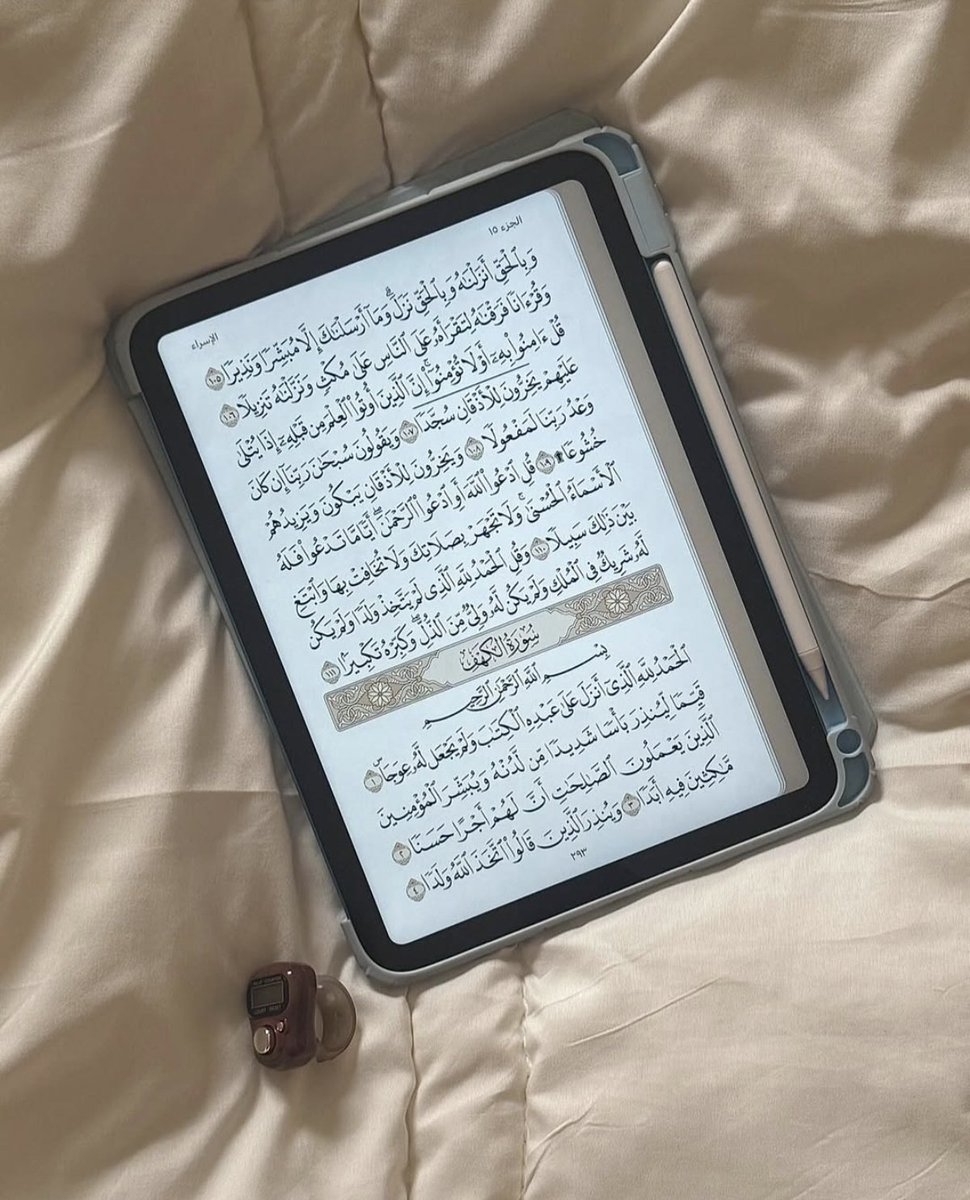 الجزء ١٥
الإسراء
وَبِٱلْحَقِّ أَنزَلْنَٰهُ وَبِٱلْحَقِّ نَزَلَ ۗ وَمَآ أَرْسَلْنَٰكَ إِلَّا مُبَشِّرًا وَنَذِيرًا ١٠٥
وَقُرْءَانًا فَرَقْنَٰهُ لِتَقْرَأَهُۥ عَلَى ٱلنَّاسِ عَلَىٰ مُكْثٍ وَنَزَّلْنَٰهُ تَنزِيلًا ١٠٦
قُلْ ءَامِنُوا۟ بِهِۦٓ أَوْ لَا تُؤْمِنُوٓا۟ ۚ إِنَّ ٱلَّذِينَ أُوتُوا۟ ٱلْعِلْمَ مِن قَبْلِهِۦٓ إِذَا يُتْلَىٰ
عَلَيْهِمْ يَخِرُّونَ لِلْأَذْقَانِ سُجَّدًا ١٠٧ وَيَقُولُونَ سُبْحَٰنَ رَبِّنَآ إِن كَانَ
وَعْدُ رَبِّنَا لَمَفْعُولًا ١٠٨ وَيَخِرُّونَ لِلْأَذْقَانِ يَبْكُونَ وَيَزِيدُهُمْ
خُشُوعًا ۩ ١٠٩ قُلِ ٱدْعُوا۟ ٱللَّهَ أَوِ ٱدْعُوا۟ ٱلرَّحْمَٰنَ ۖ أَيًّا مَّا تَدْعُوا۟ فَلَهُ
ٱلْأَسْمَآءُ ٱلْحُسْنَىٰ ۚ وَلَا تَجْهَرْ بِصَلَاتِكَ وَلَا تُخَافِتْ بِهَا وَٱبْتَغِ
بَيْنَ ذَٰلِكَ سَبِيلًا ١١٠ وَقُلِ ٱلْحَمْدُ لِلَّهِ ٱلَّذِى لَمْ يَتَّخِذْ وَلَدًا وَلَمْ يَكُن
لَّهُۥ شَرِيكٌ فِى ٱلْمُلْكِ وَلَمْ يَكُن لَّهُۥ وَلِىٌّ مِّنَ ٱلذُّلِّ ۖ وَكَبِّرْهُ تَكْبِيرًۢا ١١١
سُورَةُ الكَهْفِ
بِسْمِ ٱللَّهِ ٱلرَّحْمَٰنِ ٱلرَّحِيمِ
ٱلْحَمْدُ لِلَّهِ ٱلَّذِىٓ أَنزَلَ عَلَىٰ عَبْدِهِ ٱلْكِتَٰبَ وَلَمْ يَجْعَل لَّهُۥ عِوَجَا ۜ ١
قَيِّمًا لِّيُنذِرَ بَأْسًا شَدِيدًا مِّن لَّدُنْهُ وَيُبَشِّرَ ٱلْمُؤْمِنِينَ
ٱلَّذِينَ يَعْمَلُونَ ٱلصَّٰلِحَٰتِ أَنَّ لَهُمْ أَجْرًا حَسَنًا ٢
مَّٰكِثِينَ فِيهِ أَبَدًا ٣ وَيُنذِرَ ٱلَّذِينَ قَالُوا۟ ٱتَّخَذَ ٱللَّهُ وَلَدًا ٤
٢٩٣